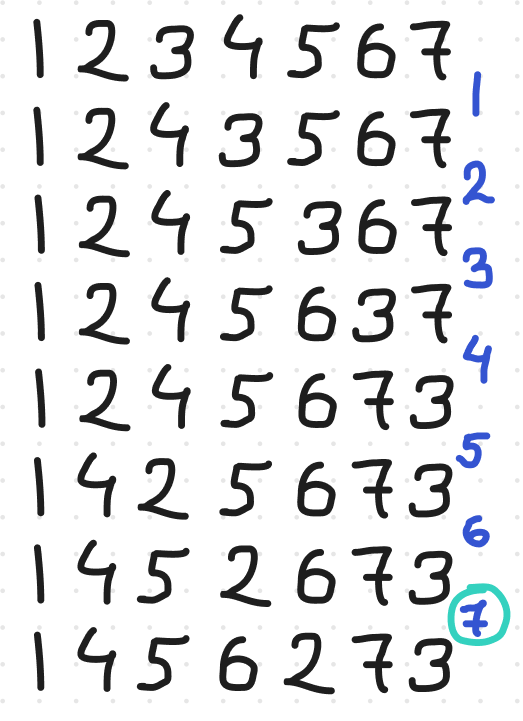 1 2 3 4 5 6 7
1
1 2 4 3 5 6 7
2
1 2 4 5 3 6 7
3
1 2 4 5 6 3 7
4
1 2 4 5 6 7 3
5
1 4 2 5 6 7 3
6
1 4 5 2 6 7 3
7
1 4 5 6 2 7 3